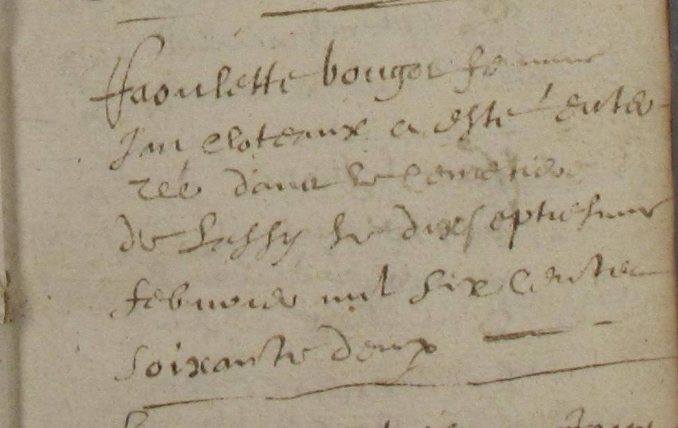 Raoulette bouget femme
Jan Cloteaux a esté enter
rée dans le cemetiere
de Lassy le dixseptiesme
febvrier mil six cents
soixante deux